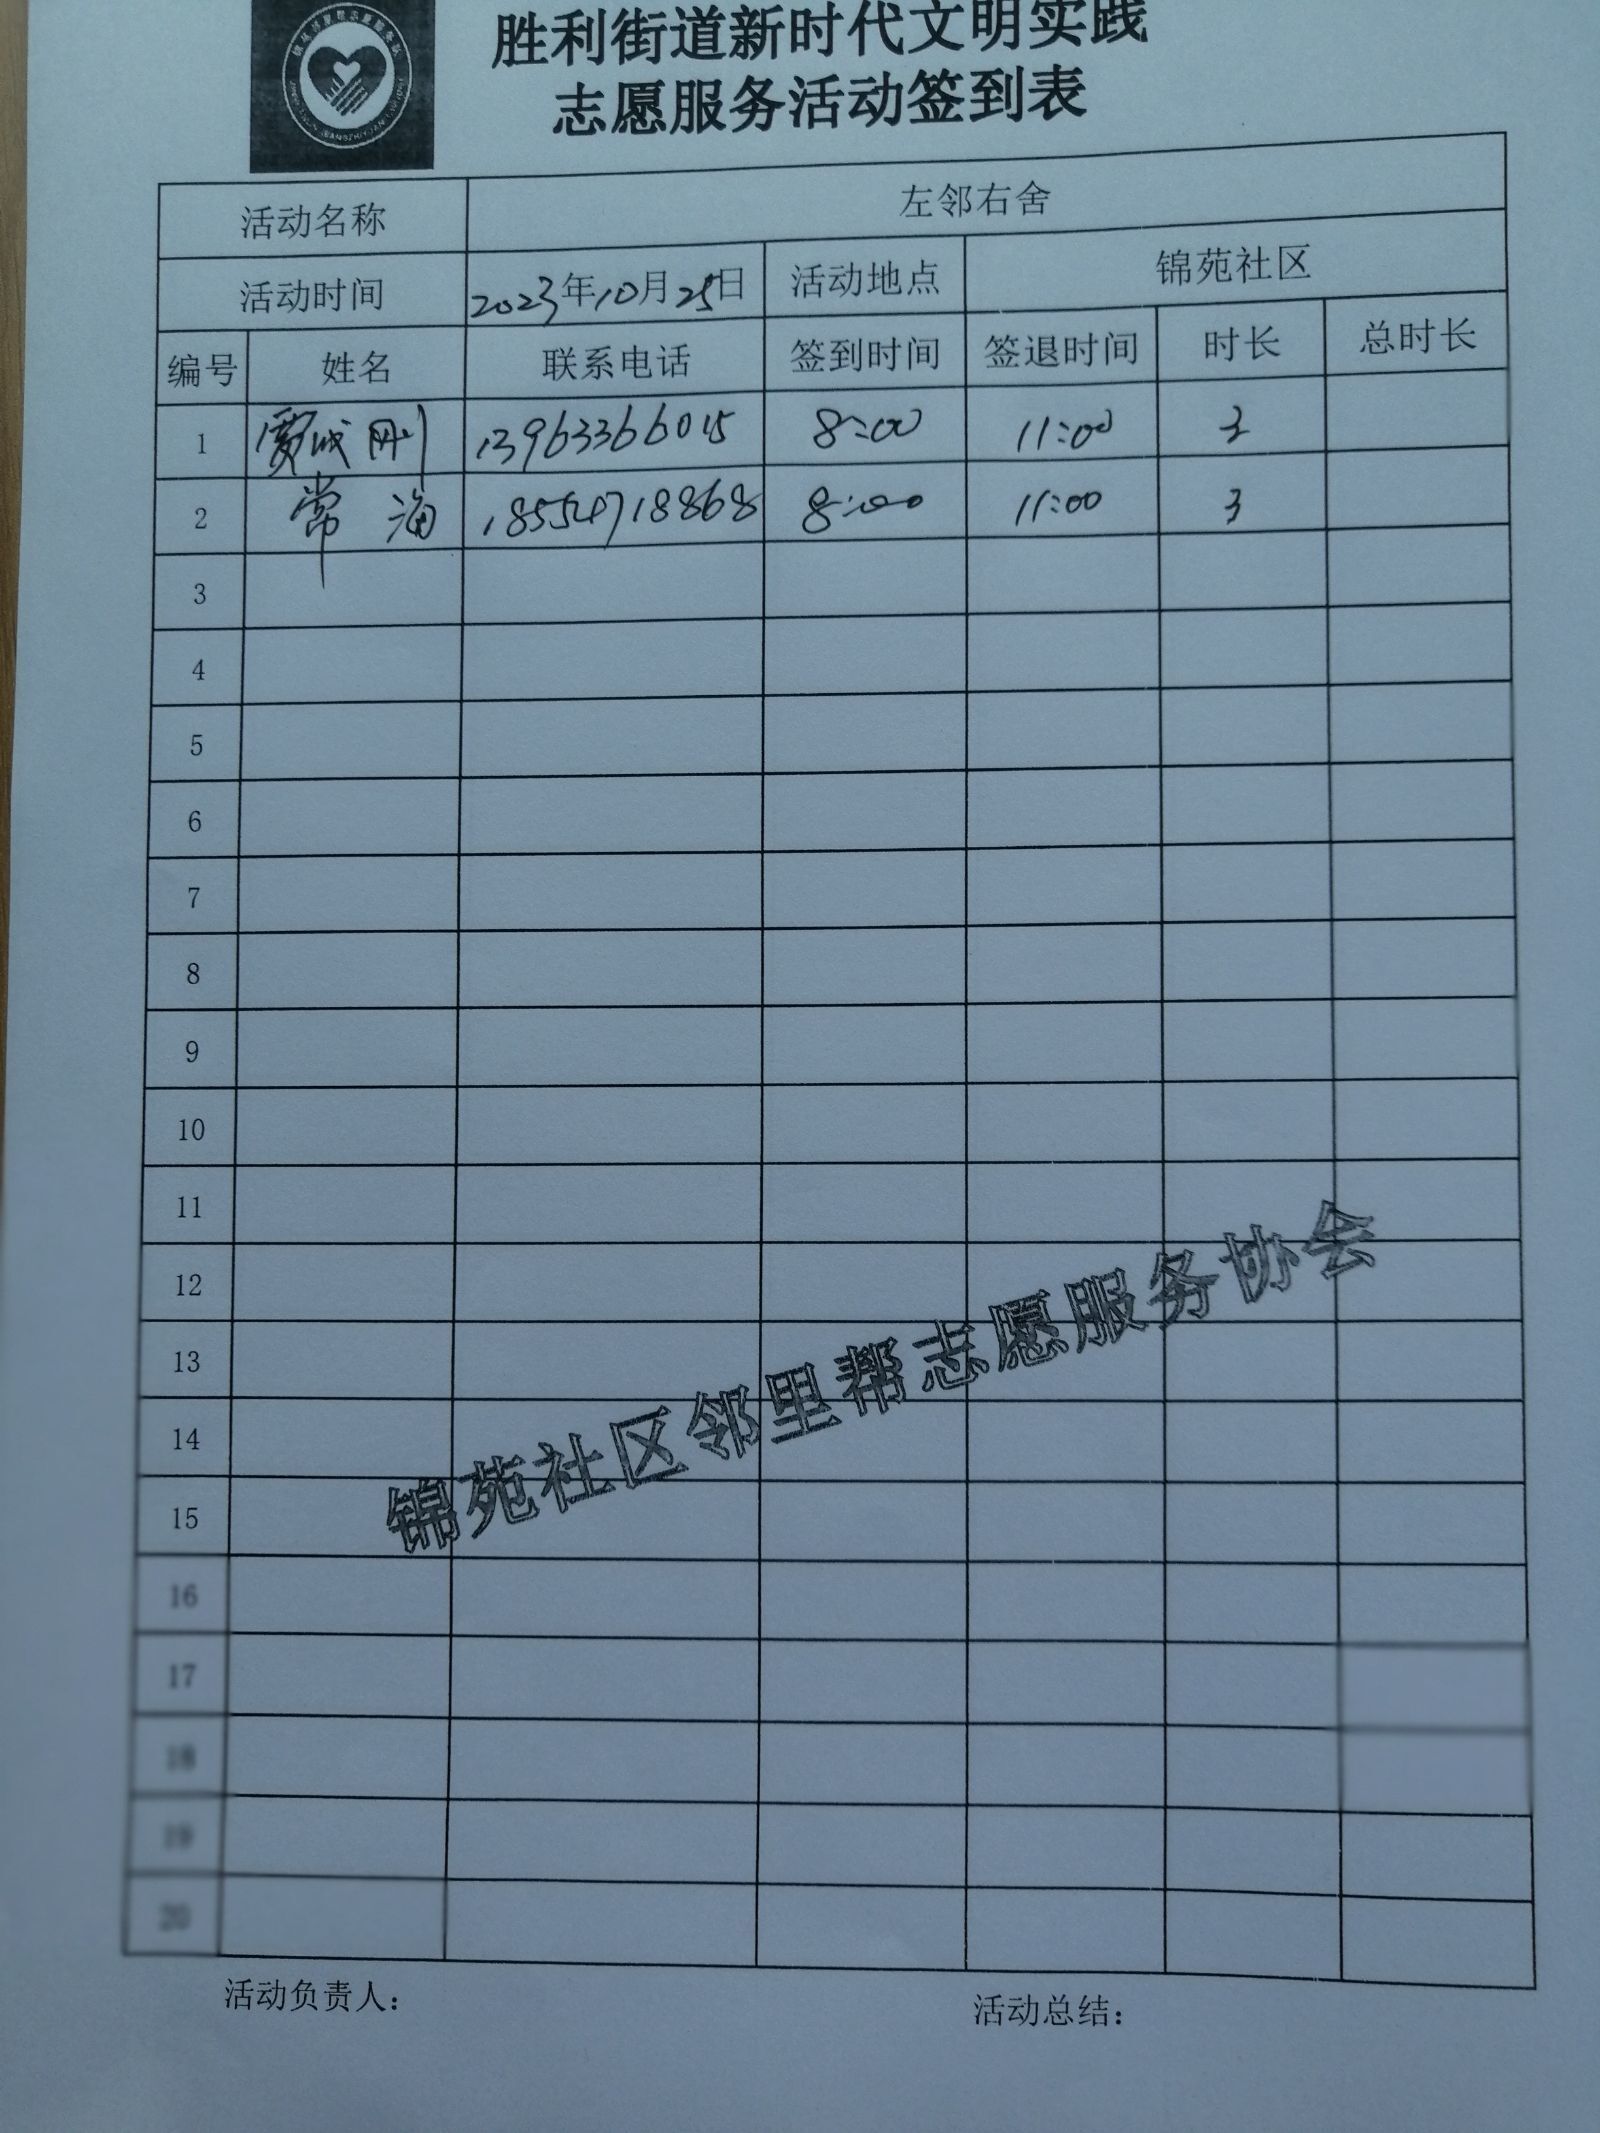 胜利街道新时代文明实践
志愿服务活动签到表
活动名称 左邻右舍
活动时间 2023年10月25日 活动地点 锦苑社区
编号 姓名 联系电话 签到时间 签退时间 时长 总时长
1 贾成刚 13963366015 8:00 11:00 3
2 常海 18554718868 8:00 11:00 3
3
4
5
6
7
8
9
10
11
12
13
14
15
16
17
18
19
20
锦苑社区邻里帮志愿服务协会
活动负责人： 活动总结：